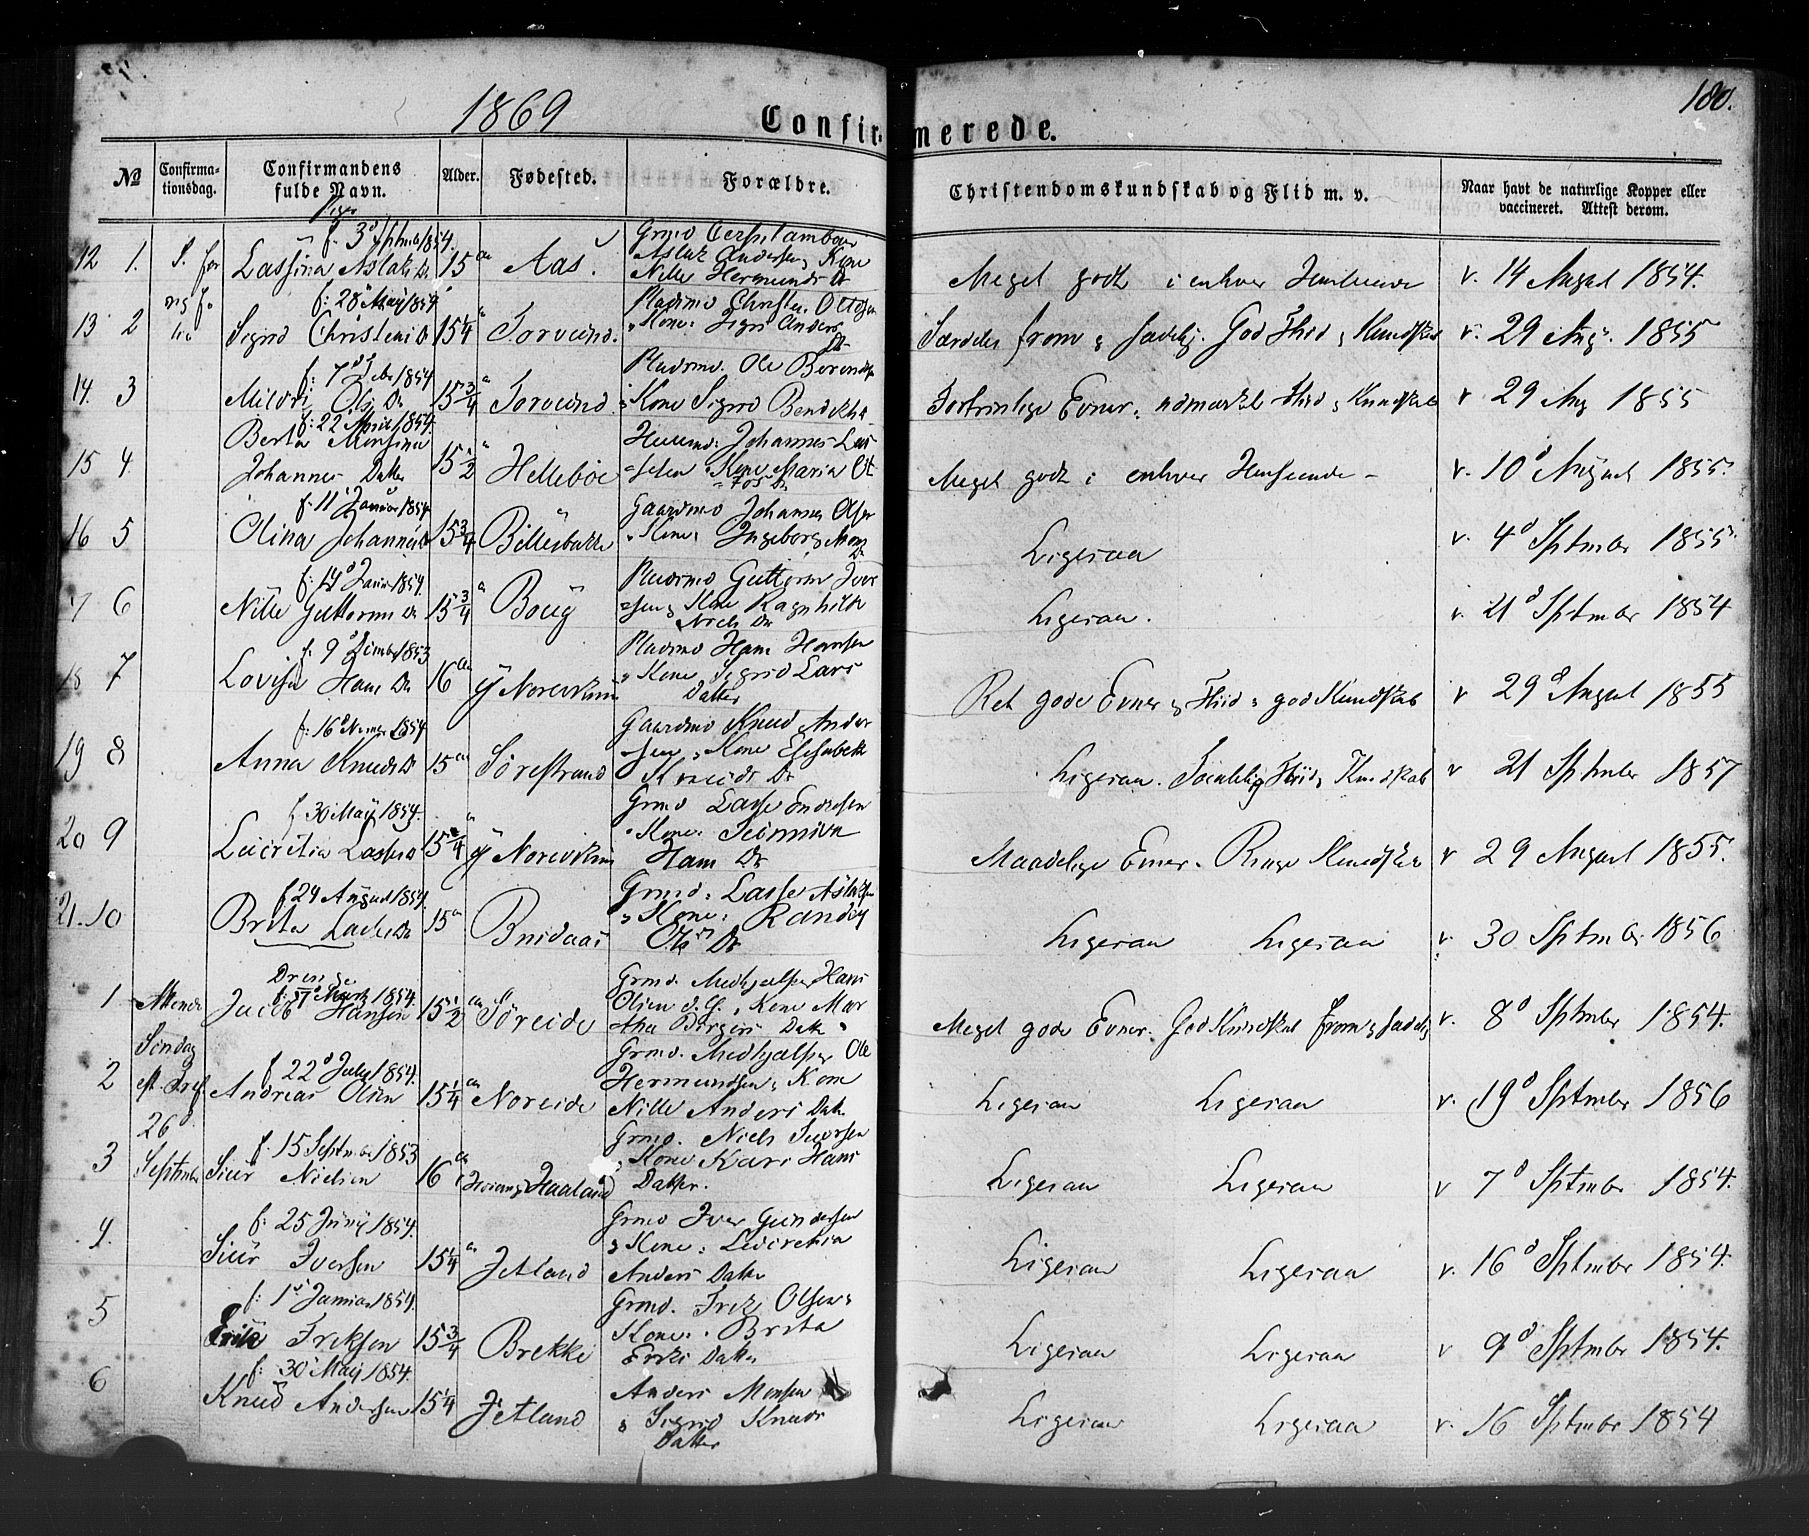 1869
180.
Confirmerede.
№
Confirmationsdag.
Confirmandens fulde Navn.
Alder.
Fødested.
Forældre.
Christendomskundskab og Flid m. v.
Naar havt de naturlige Kopper eller vaccineret. Attest derom.
Piger
f. 3d 1854.
12 1. S. for Lassina Aslaks Dr 15 Aar Aas. Grmd Aslak Andersen Kone Nille Hermunds Dr Meget godt i enhver Henseende v. 14 August 1854.
f: 28 May 1854
13 2 Sigrid Christens D 15 1/4 Torvund. Pladsmd Christen Ottosen Kone: Sigri Anders Dr Særdeles from & sædelig. God Flid & Kundskab v. 29 Aug. 1855
f: 7d Febr 1854
14. 3 Mildri Ols Dr 15 3/4 Torvund Pladsmd. Ole Berends Kone Sigrid Bendikts Fortrinlige Evner, udmærket Flid & Kundskab v 29 Aug 1855
f: 22 April 1854.
15 4. Berta Monsina Johannes Datter 15 1/2 Hellebøe Huusmd: Johannes Kone Maria Dr Meget godt i enhver Henseende - v. 10d August 1855.
f. 11 Januar 1854
16 5 Olina Johannes D 15 3/4 Gaardmd Johannes Olsen Kone: Ingeborg Mons Dr Ligesaa v. 4d Sptmber 1855
f: 14d Janr 1854.
17 6 Nille Guttorms Dr 15 3/4 Bøug Pladsmd Guttorm Iversen & Kone Ragnhild Niels Dr Ligesaa. v. 21d Sptmber 1854
f. 9d 1853
18 7 Lovisa Hans Dr 16 Aar Pladsmd Hans Hansen & Kone Sigrid Lars Datter Ret gode Evner & Fliid & god Kundskab v 29d August 1855
f: 16d 1854
19 8 Anna Knuds Dr 15 Aar Sørestrand Gaardmd Knud Andersen & Kone Elisabeth Knuds Dr Ligesaa. Fliid & Kundskab v 21 Sptmber 1857
f 30 May 1854.
20 9 Lucretia Lasses D 15 1/4 Grmd Lasse Endresen Kone: Hans Dr Maadelige Evner. Ringe Kundskab v 29 August 1855.
f 24 August 1854.
21. 10 Brita Lasses Dr 15 Aar Grmd: Lasse Aslaksen & Kone: Randvey Ols Dr Ligesaa Ligesaa v. 30 Sptmber 1856
Drenge
f. Marts 1854.
1 Jacob Hansen 15 1/2 Søreide Grmd. Medhjælper Hans Olsen & Kone Martha Børges Datter Meget gode Evner. God Kundskab from & sædelig v. 8d Sptmber 1854.
Søndag
f 22d July 1854.
2 Andreas Olsen 15 1/4 Noreide Grmd. Medhjælper Ole Hermundsen & Kone Nille Anders Datr Ligesaa Ligesaa v. 19d Sptmber 1856
26d
f. 15 Septmber 1853
3 Septmber Siur Nielsen 16 Haaland Grmd. Niels Siversen & Kone Kari Hans Datter. Ligesaa Ligesaa v 7d Sptmber 1854.
f: 25 Juny 1854.
4. Siur Iversen 15 1/4 Jetland Grmd Iver Gundersen & Kone: Lucretia Anders Datter Ligesaa Ligesaa v. 16d Sptmber 1854.
f: 1d Januar 1854.
5 Erik Eriksen 15 3/4 Brekke Grmd. Erik Olsen & Kone: Brita Eriks Datter Ligesaa Ligesaa v 9d Sptmber 1854.
f: 30 May 1854.
6 Knud Andersen 15 1/4 Jetland Anders Monsen & Sigrid Knuds Datter Ligesaa Ligesaa v. 16 Sptmber 1854